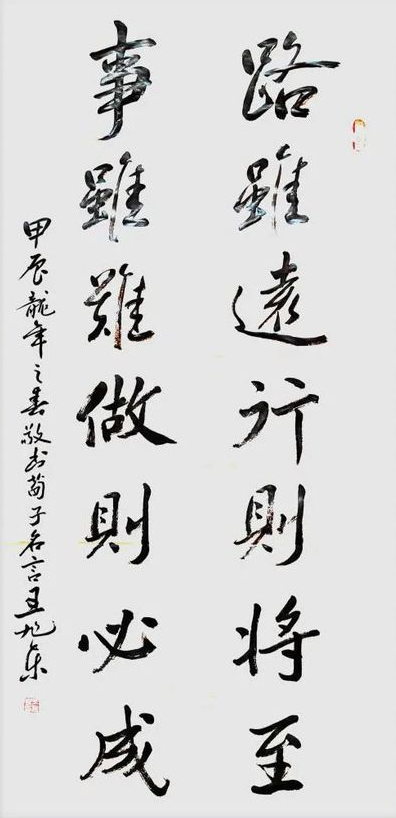 路雖遠行則將至
事雖難做則必成
甲辰龍年之春敬書荀子名言王旭東